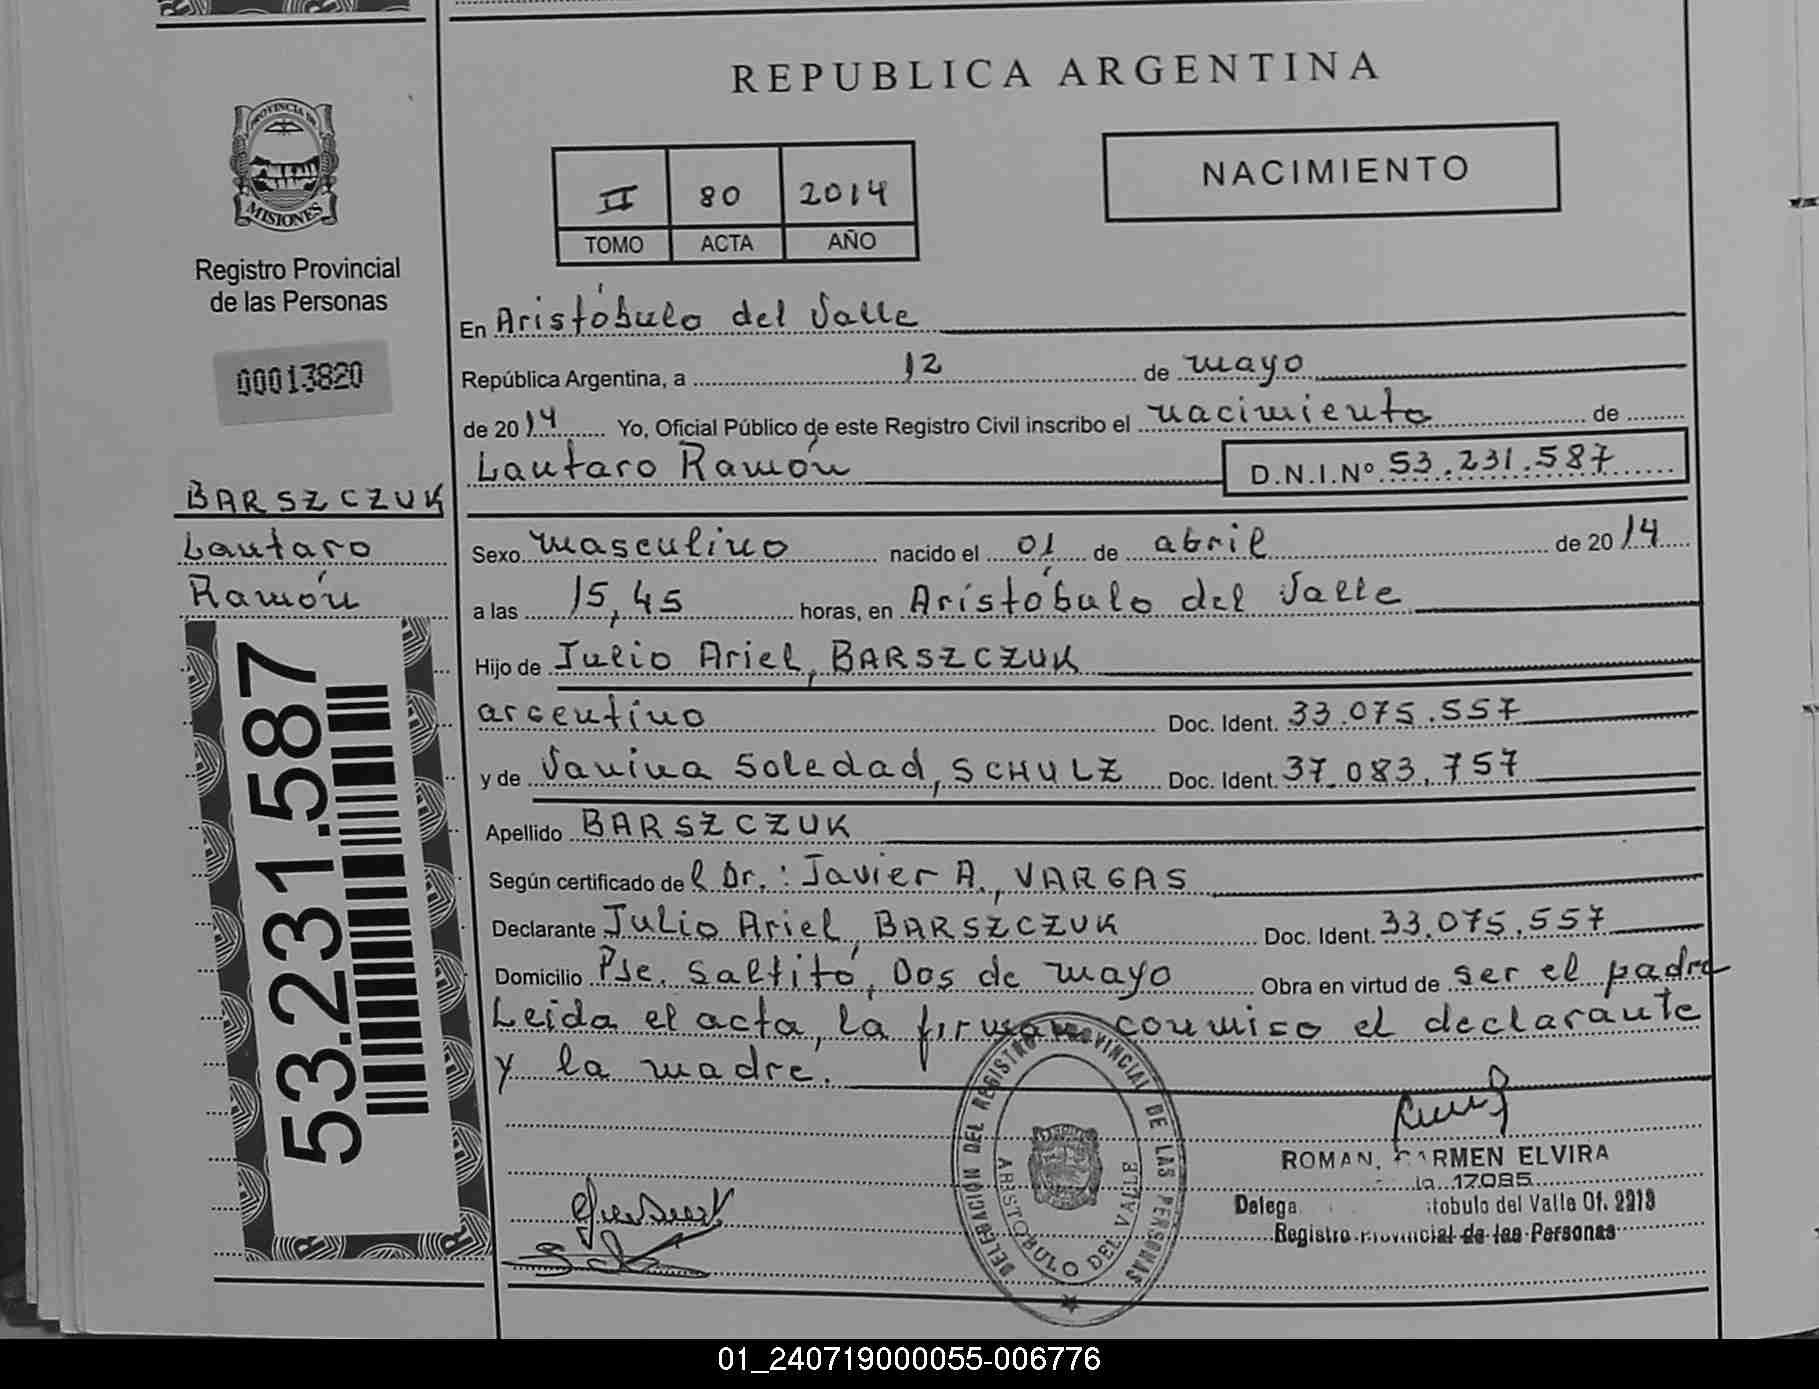 REPUBLICA ARGENTINA
PROVINCIA DE
MISIONES
Registro Provincial
de las Personas
00013820
BARSZCZUK
Lautaro
Ramón
53.231.587
II 80 2014
TOMO ACTA AÑO
NACIMIENTO
En Aristóbulo del Valle
República Argentina, a 12 de mayo
de 2014 Yo, Oficial Público de este Registro Civil inscribo el nacimiento de
Lautaro Ramón D.N.I.Nº 53.231.587
Sexo masculino nacido el 01 de abril de 2014
a las 15,45 horas, en Aristóbulo del Valle
Hijo de Julio Ariel, BARSZCZUK
argentino Doc. Ident. 33.075.557
y de Vanina Soledad, SCHULZ Doc. Ident. 37.083.757
Apellido BARSZCZUK
Según certificado del Dr.: Javier A., VARGAS
Declarante Julio Ariel, BARSZCZUK Doc. Ident. 33.075.557
Domicilio Pje. Saltito, Dos de mayo Obra en virtud de ser el padre
Leida el acta, la firman conmigo el declarante
y la madre.
DELEGACIÓN DEL REGISTRO PROVINCIAL DE LAS PERSONAS
ARISTOBULO DEL VALLE
ROMAN, CARMEN ELVIRA
17085
Delega tobulo del Valle Of. 2213
Registro Provincial de las Personas
01_240719000055-006776